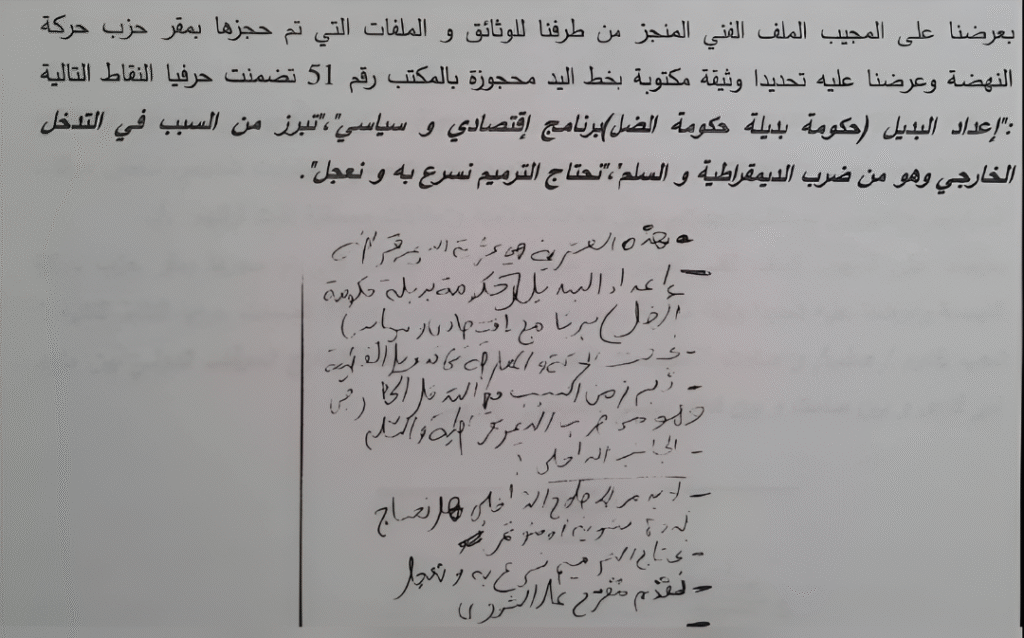 بعرضنا على المجيب الملف الفني المنجز من طرفنا للوثائق و الملفات التي تم حجزها بمقر حزب حركة
النهضة وعرضنا عليه تحديدا وثيقة مكتوبة بخط اليد محجوزة بالمكتب رقم 51 تضمنت حرفيا النقاط التالية
:"إعداد البديل (حكومة بديلة حكومة الضل)برنامج إقتصادي و سياسي"،"تبرز من السبب في التدخل
الخارجي وهو من ضرب الديمقراطية و السلم"،"تحتاج الترميم نسرع به و نعجل".
هذه العشرية هي عشرية الديمقراطية
- إعداد البديل (حكومة بديلة حكومة
الضل) برنامج إقتصادي و سياسي
- نبرز من السبب في التدخل الخارجي
وهو من ضرب الديمقراطية والسلم
- الجانب الداخلي :
- لابد من الداخلي هل نحتاج
ندوة سنوية أو مؤتمر
- نحتاج الترميم نسرع به و نعجل
- نقدم مقترح على الشورى